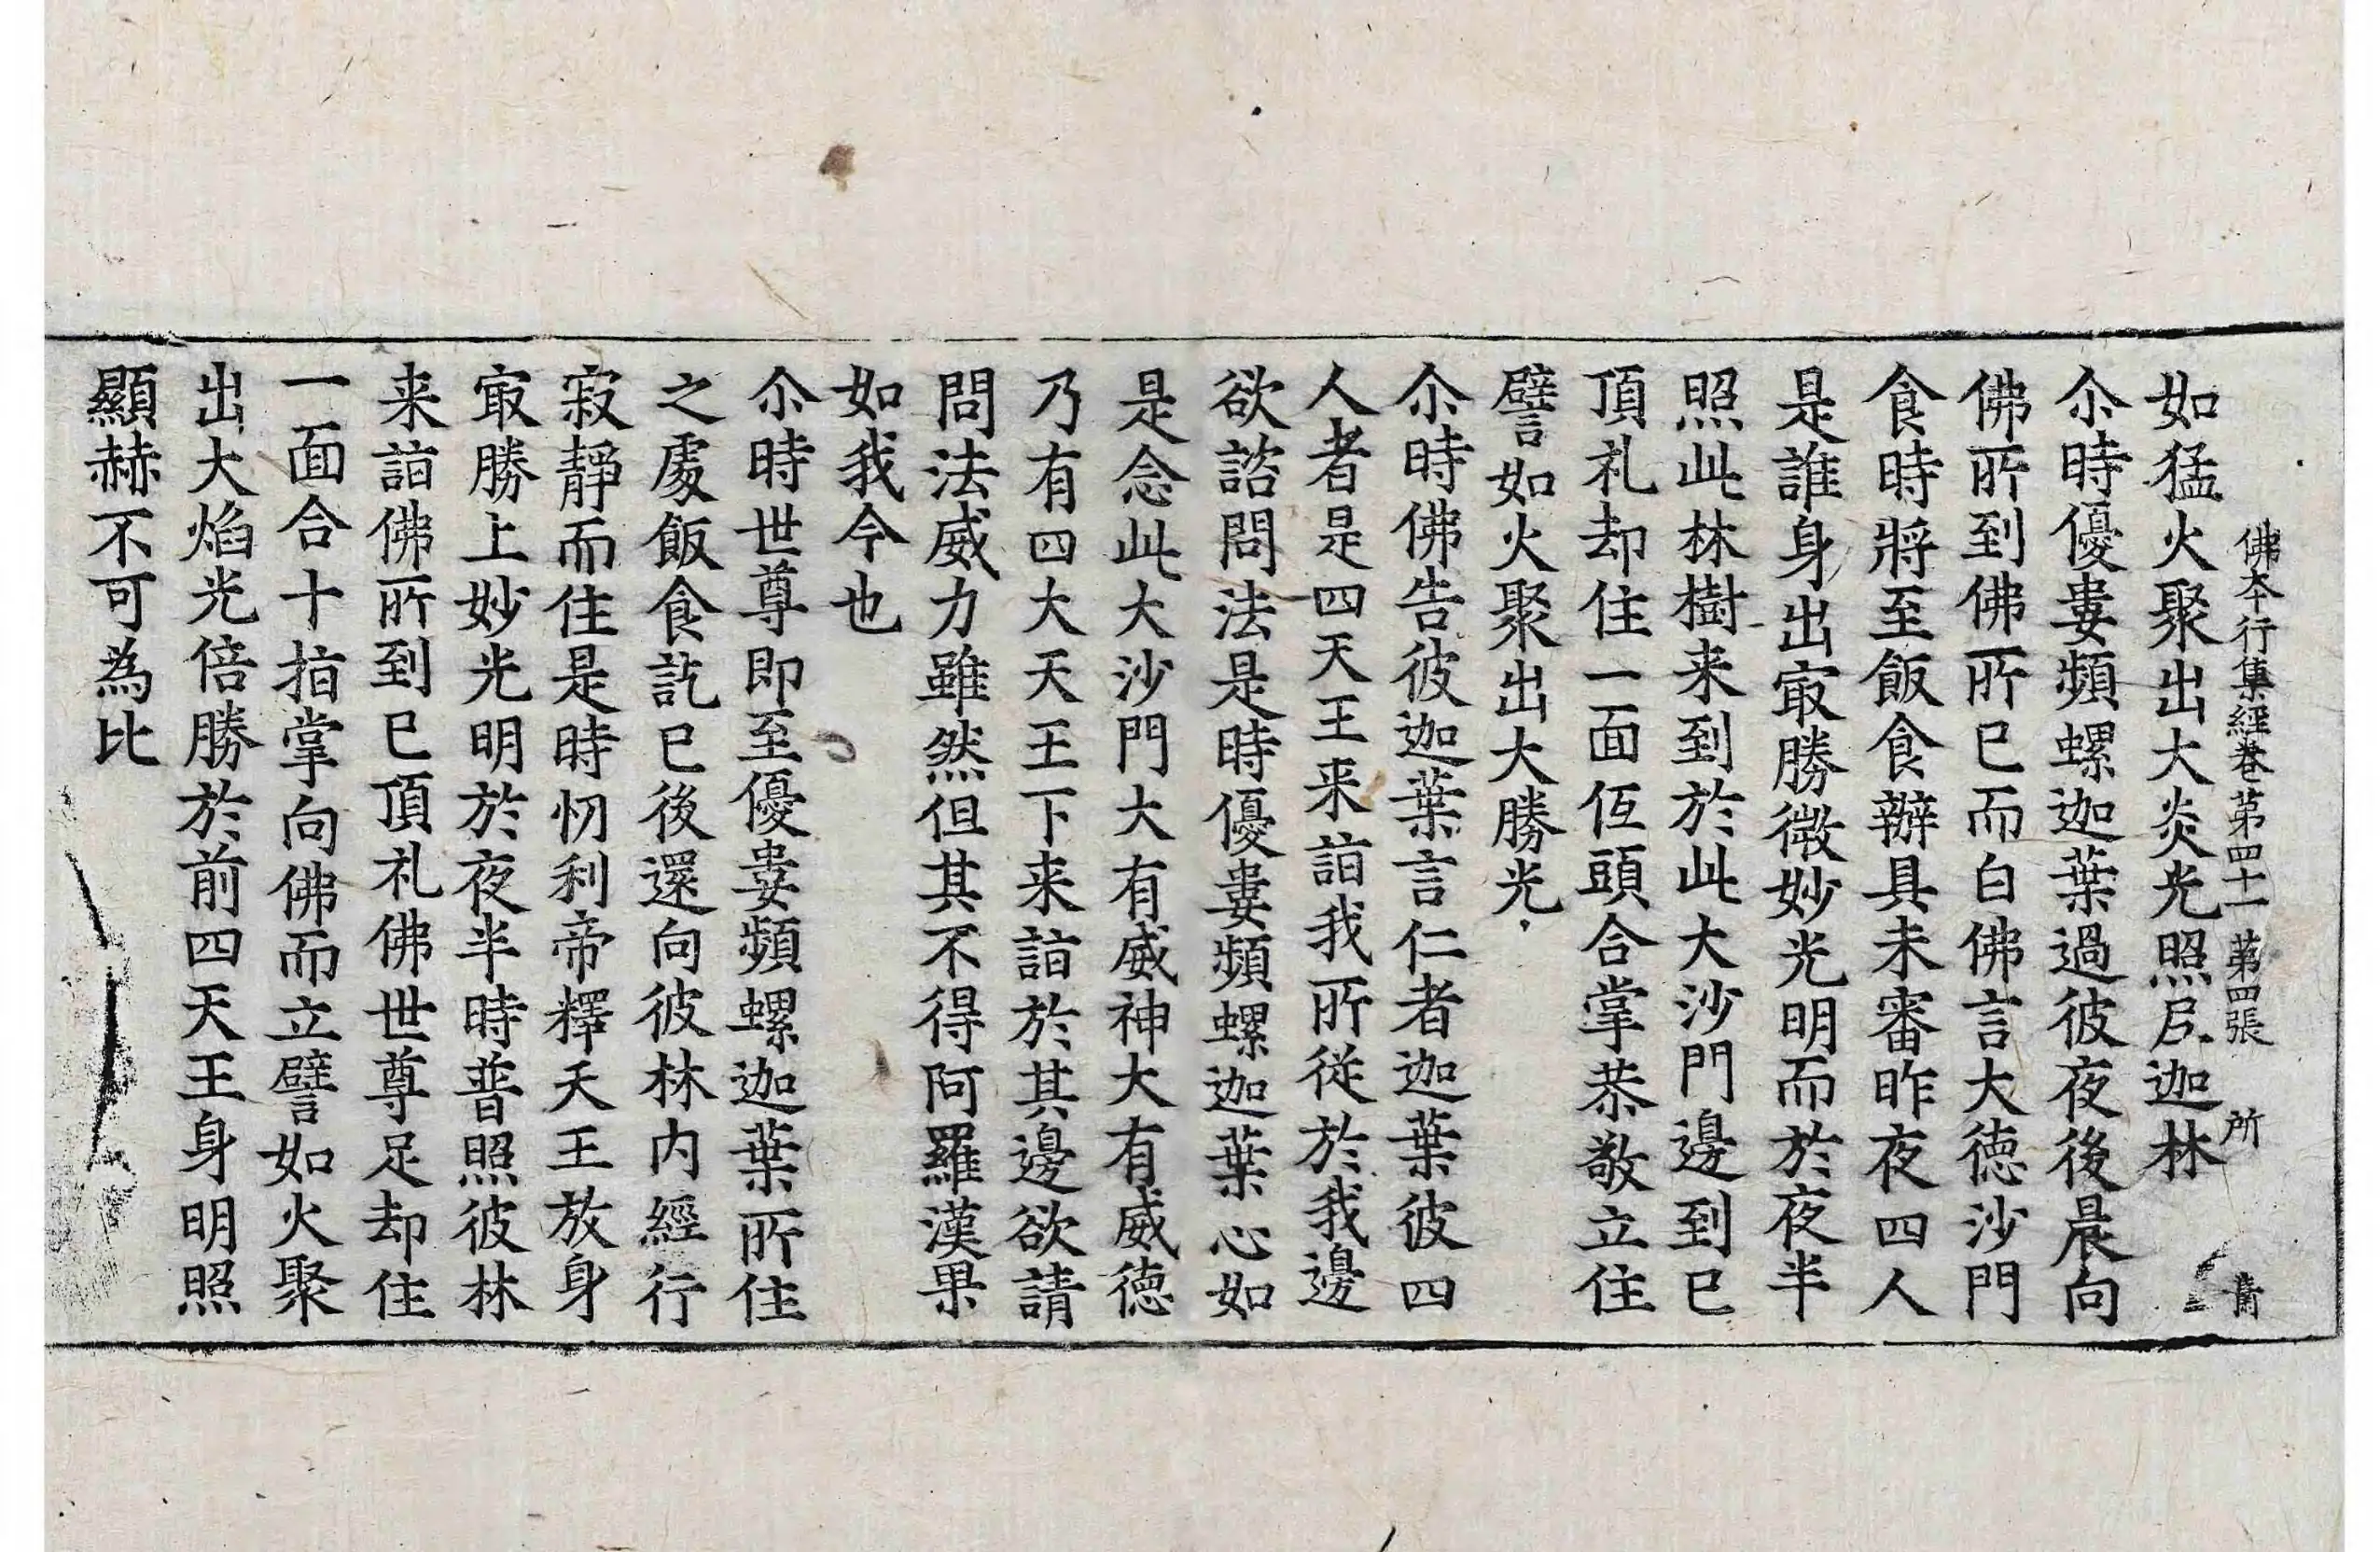 佛本行集經卷第四十一 第四張 所
如猛火聚出大炎光照尸迦林
尒時優婁頻螺迦葉過彼夜後晨向
佛所到佛所已而白佛言大德沙門
食時將至飯食辦具未審昨夜四人
是誰身出冣勝微妙光明而於夜半
照此林樹来到於此大沙門邊到已
頂礼却住一面低頭合掌恭敬立住
譬如火聚出大勝光
尒時佛告彼迦葉言仁者迦葉彼四
人者是四天王来詣我所從於我邊
欲諮問法是時優婁頻螺迦葉心如
是念此大沙門大有威神大有威德
乃有四大天王下来詣於其邊欲請
問法威力雖然但其不得阿羅漢果
如我今也
尒時世尊即至優婁頻螺迦葉所住
之處飯食訖已後還向彼林内經行
寂靜而住是時忉利帝釋天王放身
冣勝上妙光明於夜半時普照彼林
来詣佛所到已頂礼佛世尊足却住
一面合十指掌向佛而立譬如火聚
出大焰光倍勝於前四天王身明照
顯赫不可為比